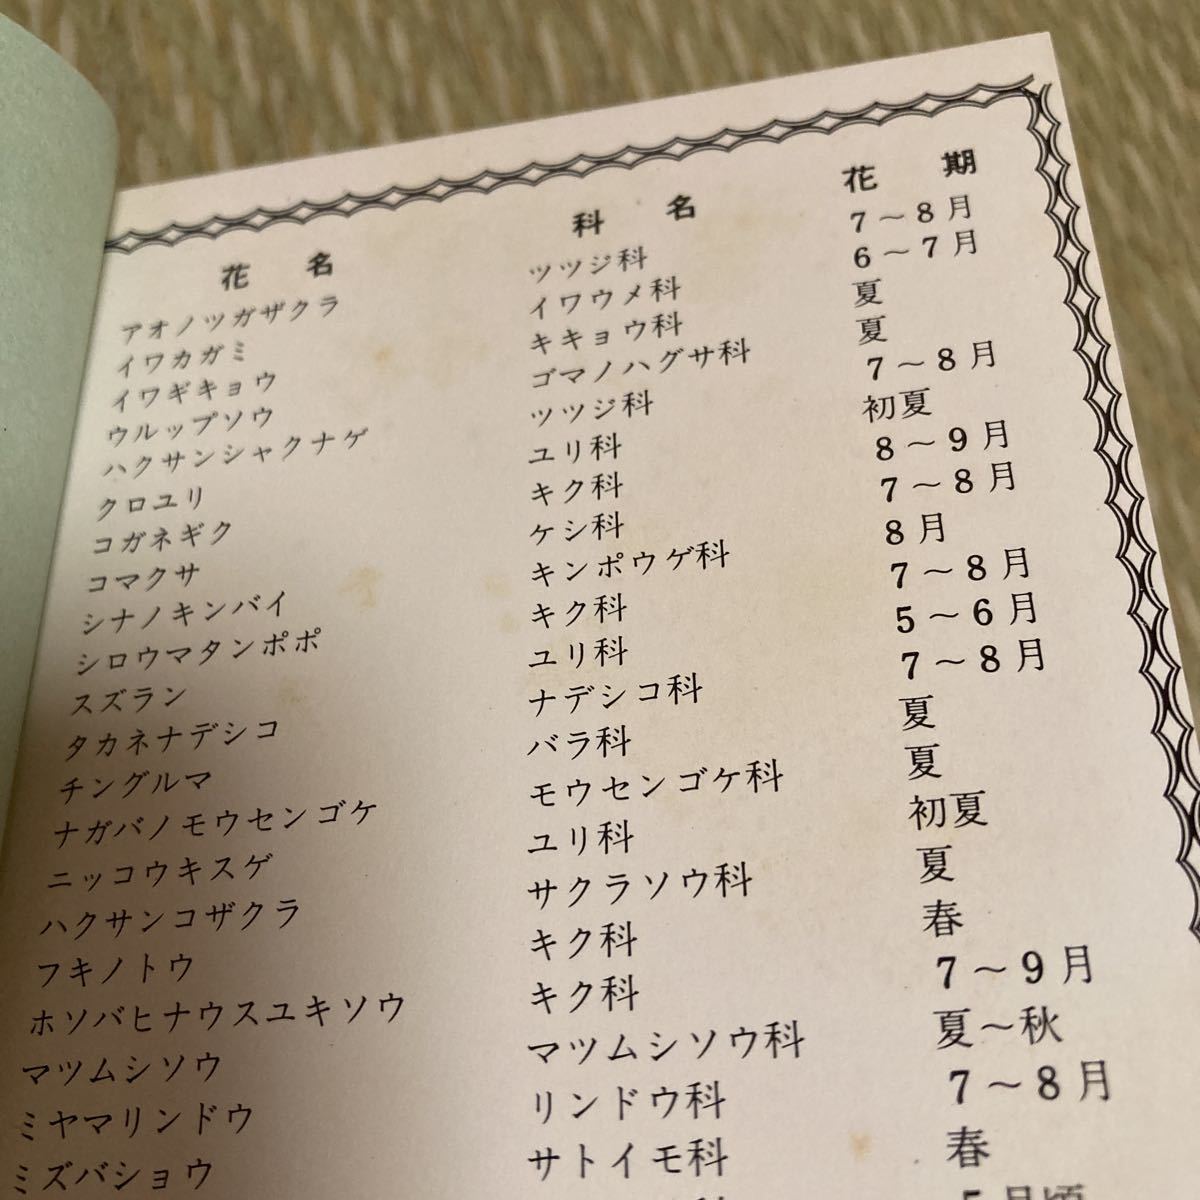 花名 科名 花期
アオノツガザクラ ツツジ科 7～8月
イワカガミ イワウメ科 6～7月
イワギキョウ キキョウ科 夏
ウルップソウ ゴマノハグサ科 夏
ハクサンシャクナゲ ツツジ科 7～8月
クロユリ ユリ科 初夏
コガネギク キク科 8～9月
コマクサ ケシ科 7～8月
シナノキンバイ キンポウゲ科 8月
シロウマタンポポ キク科 7～8月
スズラン ユリ科 5～6月
タカネナデシコ ナデシコ科 7～8月
チングルマ バラ科 夏
ナガバノモウセンゴケ モウセンゴケ科 夏
ニッコウキスゲ ユリ科 初夏
ハクサンコザクラ サクラソウ科 夏
フキノトウ キク科 春
ホソバヒナウスユキソウ キク科 7～9月
マツムシソウ マツムシソウ科 夏～秋
ミヤマリンドウ リンドウ科 7～8月
ミズバショウ サトイモ科 春
5月頃